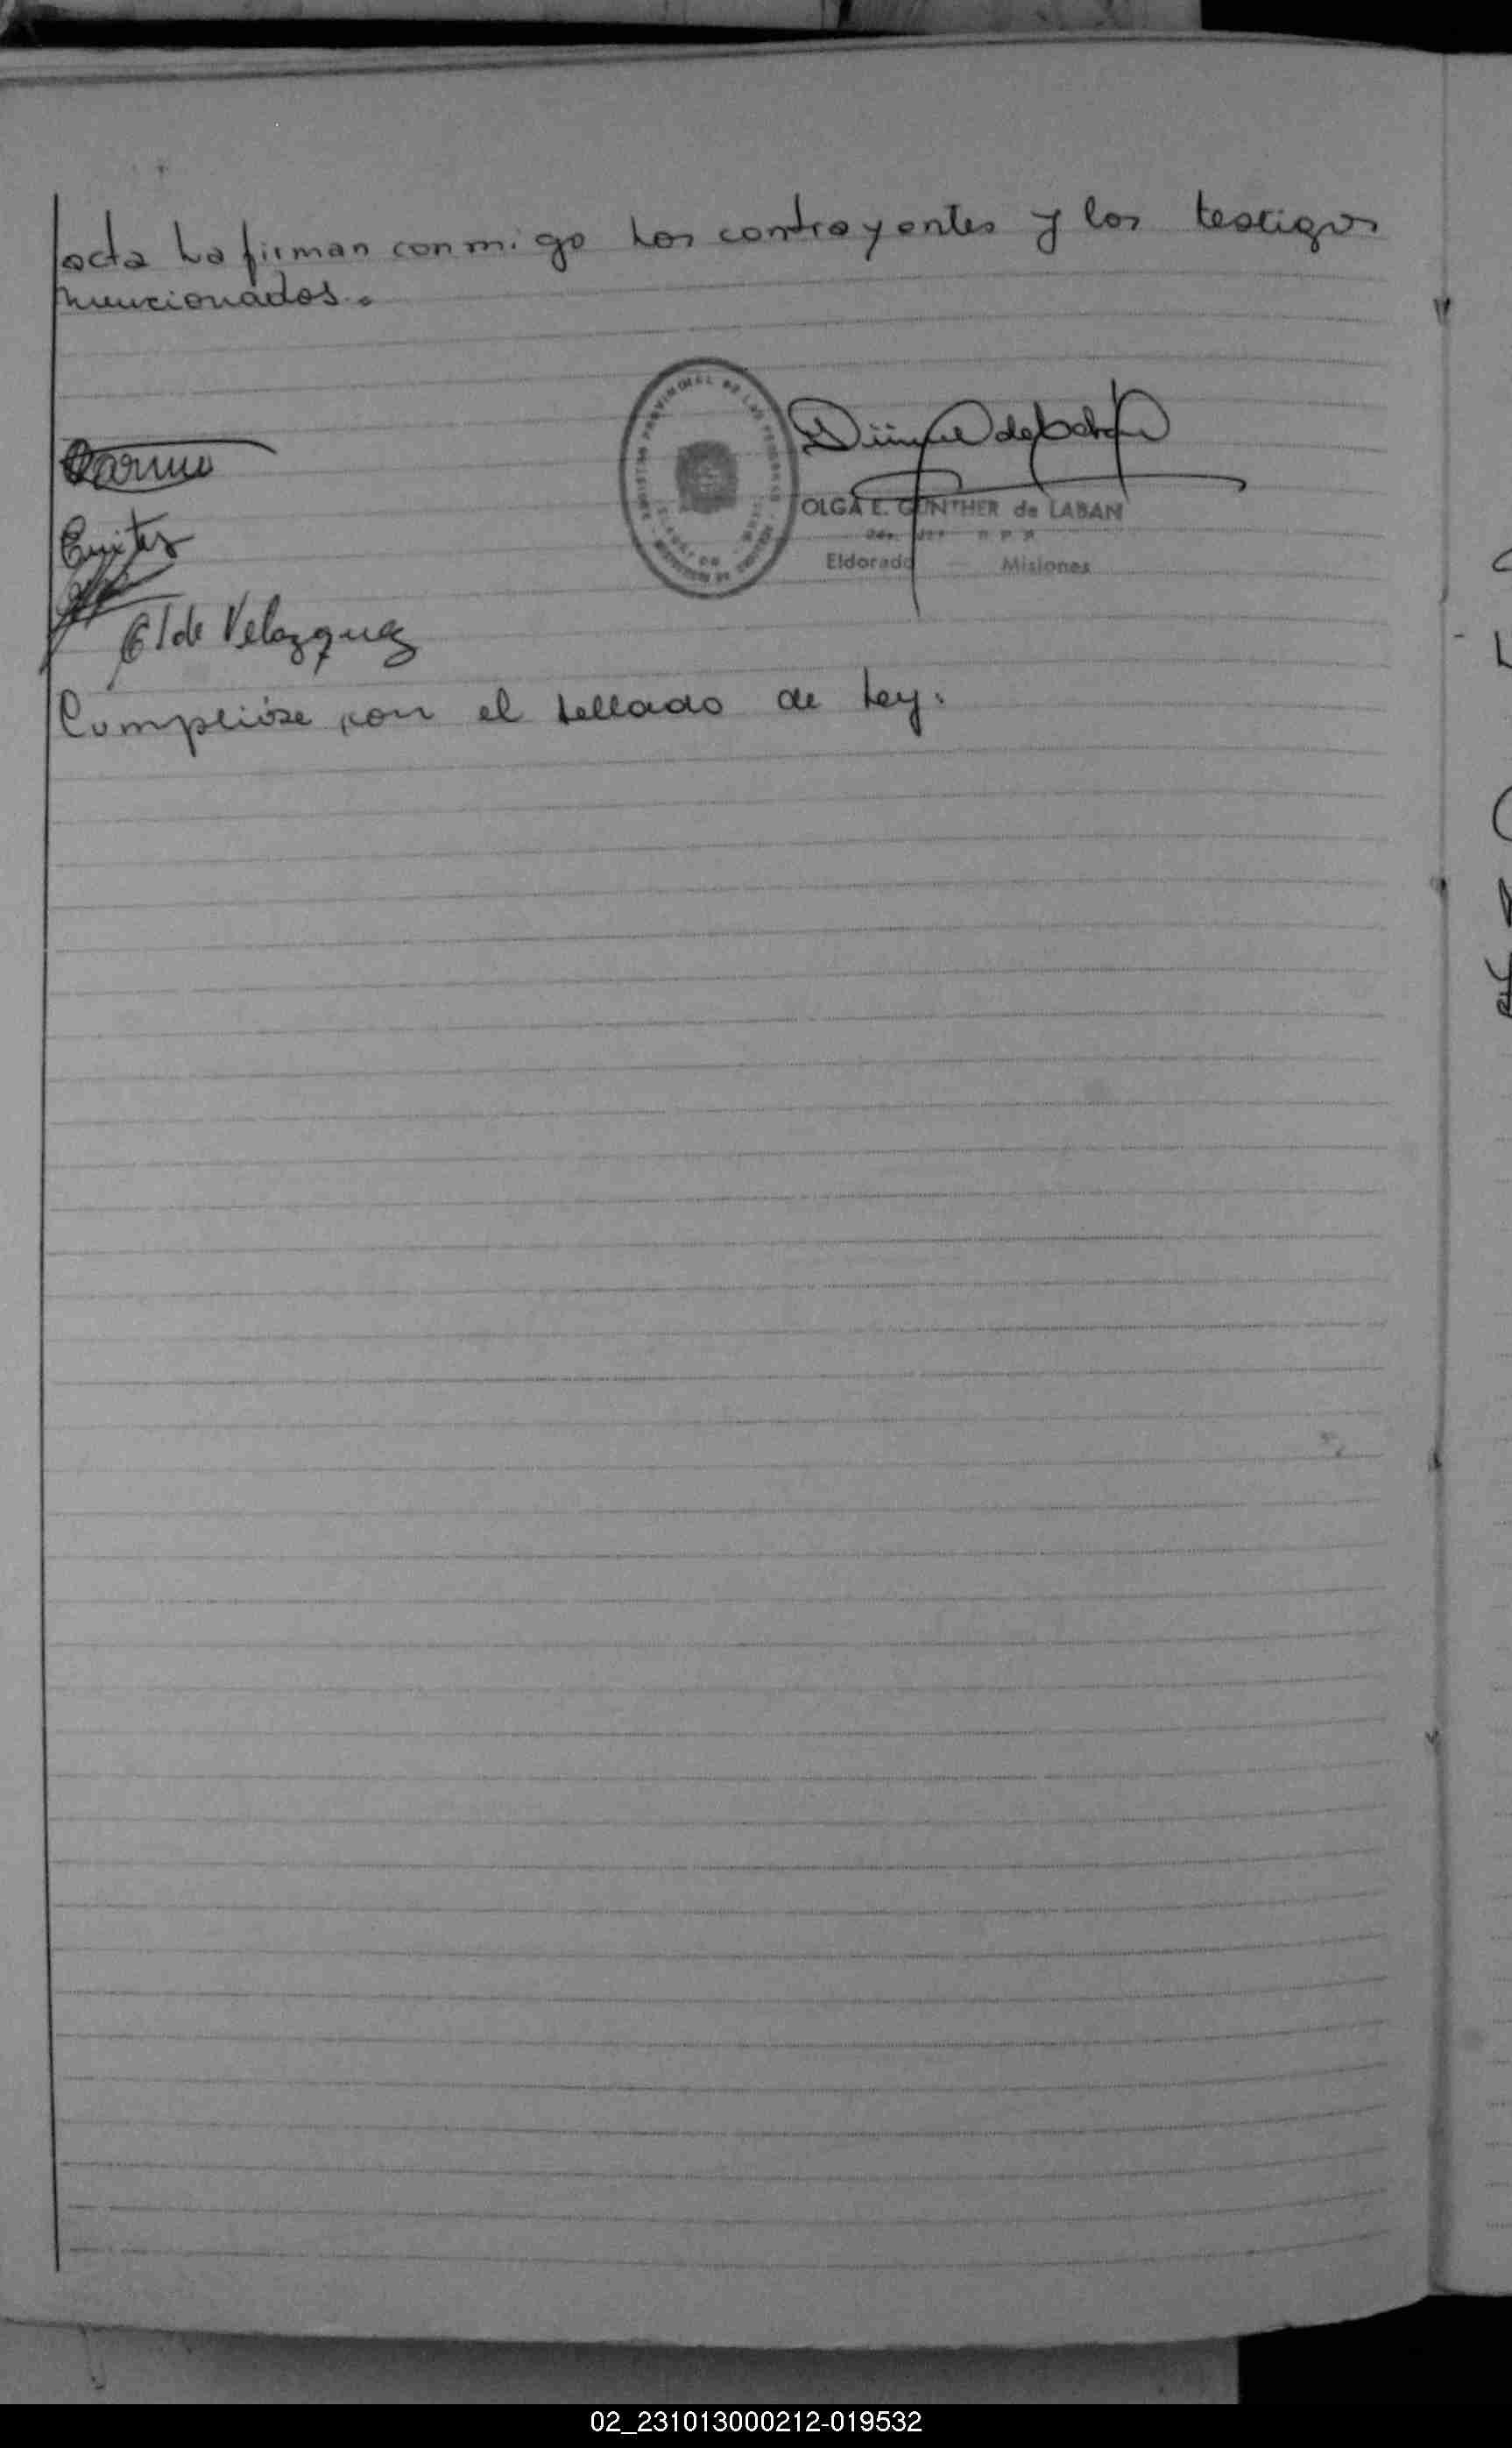 acta La firman conmigo Los contrayentes y los testigos
mencionados.
REGISTRO PROVINCIAL DE LAS PERSONAS
OLGA E. GUNTHER de LABAN
Eldorado — Misiones
C I de Velazquez
Cumplióse con el sellado de Ley.
02_231013000212-019532